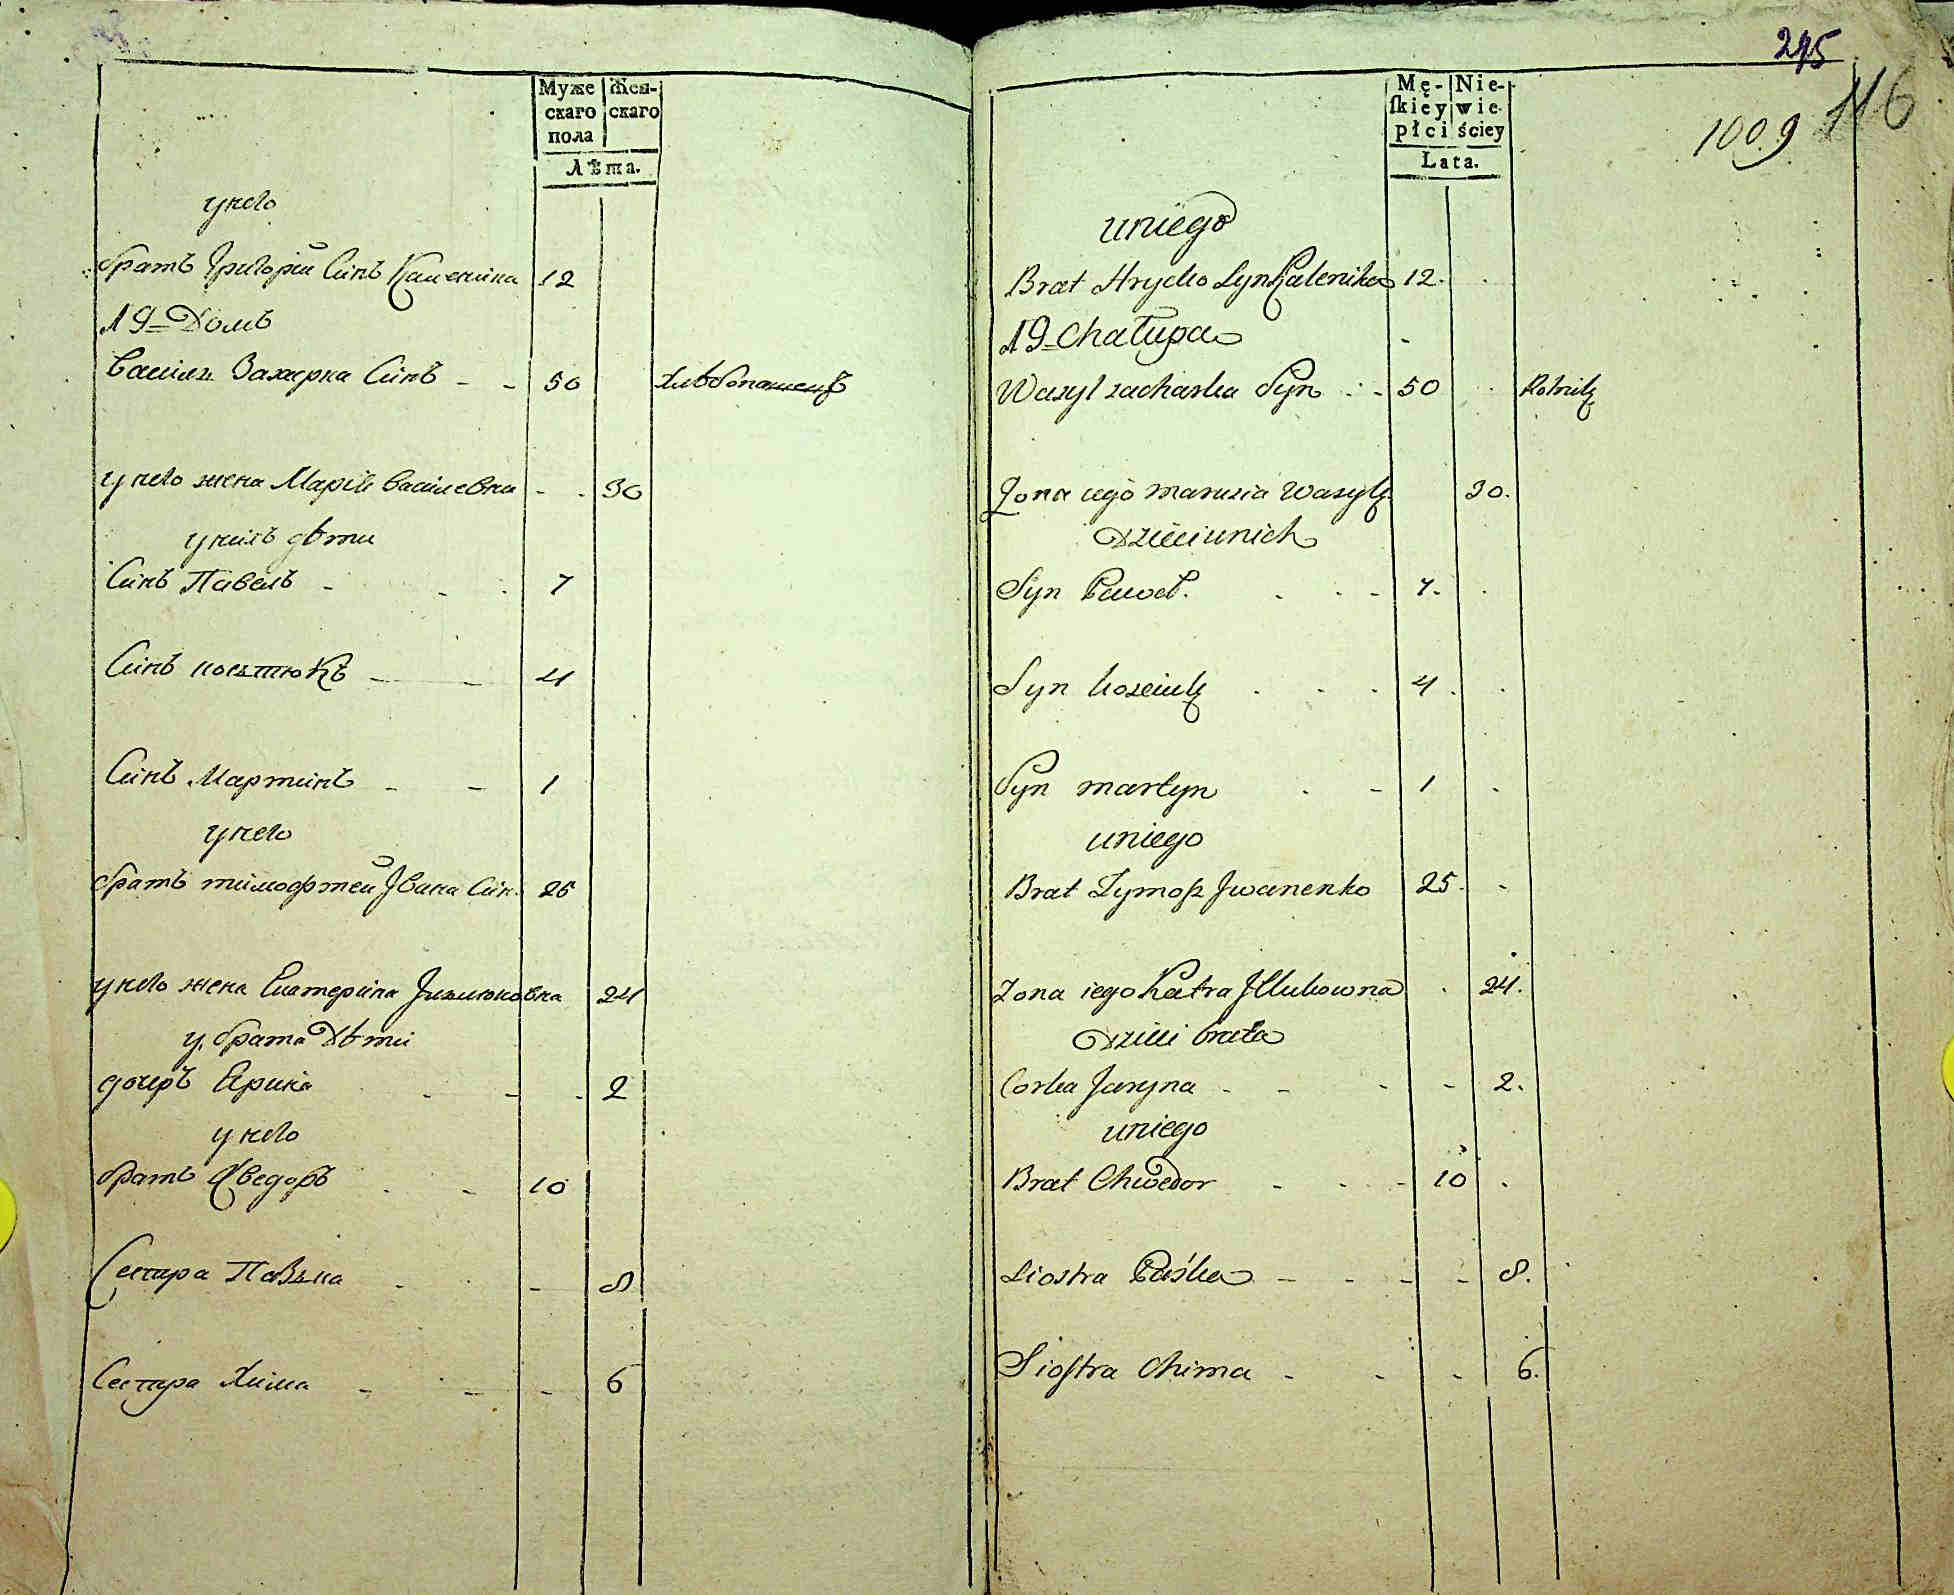 Муже
скаго
пола
Жен-
скаго
Лѣта.
у него
братъ Григорий Синъ Каленика 12
19 = Домъ
Василь Захарка Синъ - - 50 хлѣбопашецъ
у него жена Марія Василевна - - 30
у нихъ дѣти
Синъ Павелъ - 7
Синъ костюкъ - - 4
Синъ Мартинъ - - 1
у него
братъ тимофтей Івана Син. 25
у него жена Екатерина 24
у брата Дѣти
дочеръ Ярина - - 2
у него
братъ Хведоръ - 10
Сестра Паська - 8
Сестра Хима - - - 6
295
1009 116
Mę-
skiey
płci
Nie-
wie-
ściey
Lata.
uniego
Brat Hryćko Syn Kalenika 12.
19 = Chałupa
Wasyl zacharka Syn - 50 Rolnik
Żona iego marusia Wasyl 30.
Dzieci unich
Syn Paweł. - 7.
Syn kościuk 4.
Syn martyn - 1
uniego
Brat Tymosz Jwanenko 25.
Żona iego Katra 24.
Dzieci brata
Corka Jaryna - - - - 2.
uniego
Brat Chwedor - - 10
Siostra Paśka - - - - 8.
Siostra Chima - - - 6.